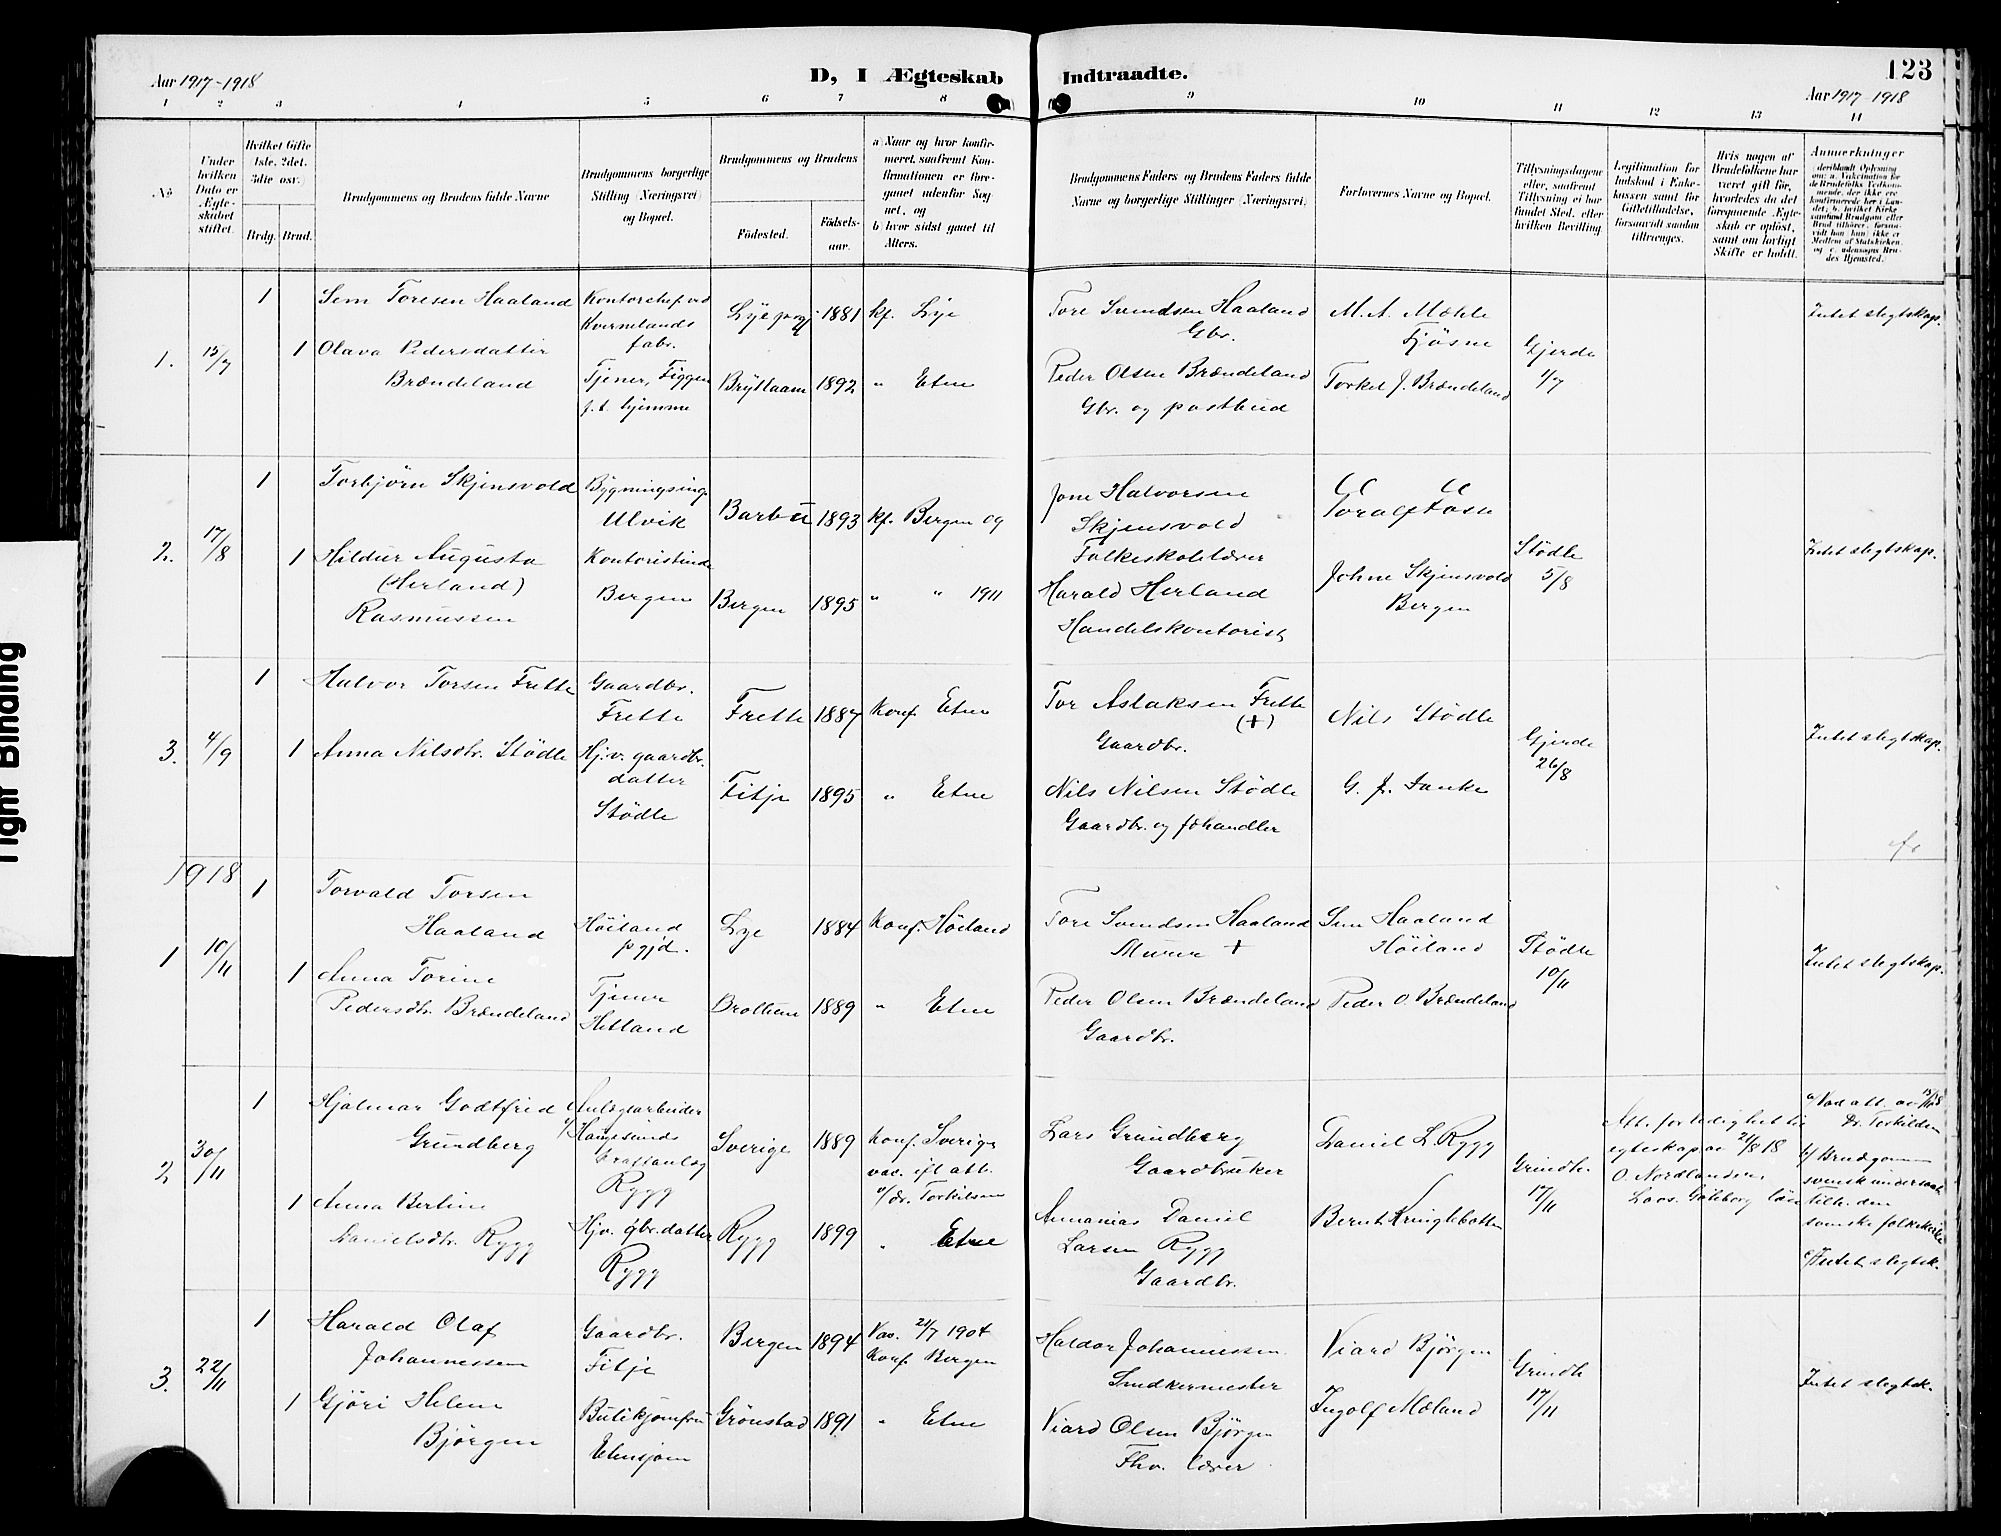 Aar 1917-1918
D, I Ægteskab Indtraadte.
123
Aar 1917-1918
1 2 3 4 5 6 7 8 9 10 11 12 13 14
No
Under hvilken Dato er Ægteskabet stiftet.
Hvilket Gifte 1ste. 2det. 3die osv.
Brdg. Brud.
Brudgommens og Brudens fulde Navne
Brudgommens borgerlige Stilling (Næringsvei) og Bopæl.
Brudgommens og Brudens
Födested.
Födselsaar.
a) Naar og hvor konfirmeret, saafremt Konfirmationen er foregaaet udenfor Sognet, og
b) hvor sidst gaaet til Alters.
Brudgommens Faders og Brudens Faders fulde Navne og borgerlige Stillinger (Næringsvei).
Forlovernes Navne og Bopæl.
Tillysningsdagene eller, saafremt Tillysning ei har fundet Sted, efter hvilken Bevilling
Legitimation for Indskud i Enkekassen samt for Giftetilladelse, forsaavidt saadan tiltrænges.
Hvis nogen af Brudefolkene har været gift før, hvorledes da det foregaaende Ægteskab er opløst, samt om lovligt Skifte er holdt.
Anmærkninger
Tight Binding
1. 15/7
1 Sem Toresen Haaland
Kontorchef ved Kvernelands fabr.
Lye prgj. 1881 kf. Lye
Tore Svendsen Haaland Gbr.
M. A. Mæhle Fjøsne
Gjerde 1/7
Intet slegtskap.
1 Olava Pedersdatter Brændeland
Tjener, Figgen p.t. hjemme
1892 " Etne
Peder Olsen Brændeland Gbr. og postbud
Torkel J. Brændeland
2. 17/8
1 Torbjörn Skjensvold
Bygningsing. Ulvik
Barbu 1893 kf. Bergen og
Jone Halvorsen Skjensvold Folkeskolelærer
Stödle 5/8
Intet slegtskap.
1 Hildur Augusta (Herland) Rasmussen
Kontoristinde Bergen
Bergen 1895 " " 1911
Harald Herland Handelskontorist
Johne Skjensvold Bergen
3. 4/9
1 Halvor Torsen Frette
Gaardbr. Frette
Frette 1887 Konf. Etne
Tor Aslaksen Frette (+) Gaardbr.
Nils Stödle
Gjerde 26/8
Intet slegtskap.
1 Anna Nilsdtr. Stödle
Hj.v. gaardbr. datter Stödle
Fitje 1895 " Etne
Nils Nilsen Stödle Gaardbr. og fehandler
1918
1 10/11
1 Torvald Torsen Haaland
Höiland pgjd.
Lye 1884 Konf. Höiland
Tore Svendsen Haaland Murer +
Sem Haaland Höiland
Stödle 10/11
Intet slegtskap.
1 Anna Torine Pedersdtr. Brændeland
Tjener Hetland
1889 " Etne
Peder Olsen Brændeland Gaardbr.
Peder O. Brændeland
2 30/11
1 Hjalmar Godtfried Grundberg
Anlegsarbeider v/ Haugesunds Kraftanlæg Rygg
Sverige 1889 Konf. Sverige vac. ifl. att. v/dr. Torkilsen
Lars Grundberg Gaardbruker
Daniel L. Rygg
Grindh. 17/11
Att. for ledighet til egteskap av 21/8 18 O. Nordlander
a/ Vac. att. av 15/10 18 Dr. Torkildsen
b/ Brudgommen svensk undersaat, tilh. den svenske folkekirke
c/ Intet slegtsk.
1 Anna Bertine Danielsdtr. Rygg
Hjv. gbr. datter Rygg
Rygg 1899 " Etne
Annanias Daniel Larsen Rygg Gaardbr.
Bernt Kringlebotten
3. 22/11
1 Harald Olaf Johannessen
Gaardbr. Fitje
Bergen 1894 Vac. 21/7 1904 Konf. Bergen
Haldor Johannessen Snedkermester
Viard Björgen
Grindh. 17/11
Intet slegtsk.
1 Gjöri Helene Björgen
Butikjomfru Etnesjøen
Grönstad 1891 " Etne
Viard Olsen Björgen Fhv. lærer
Ingolf Mæland